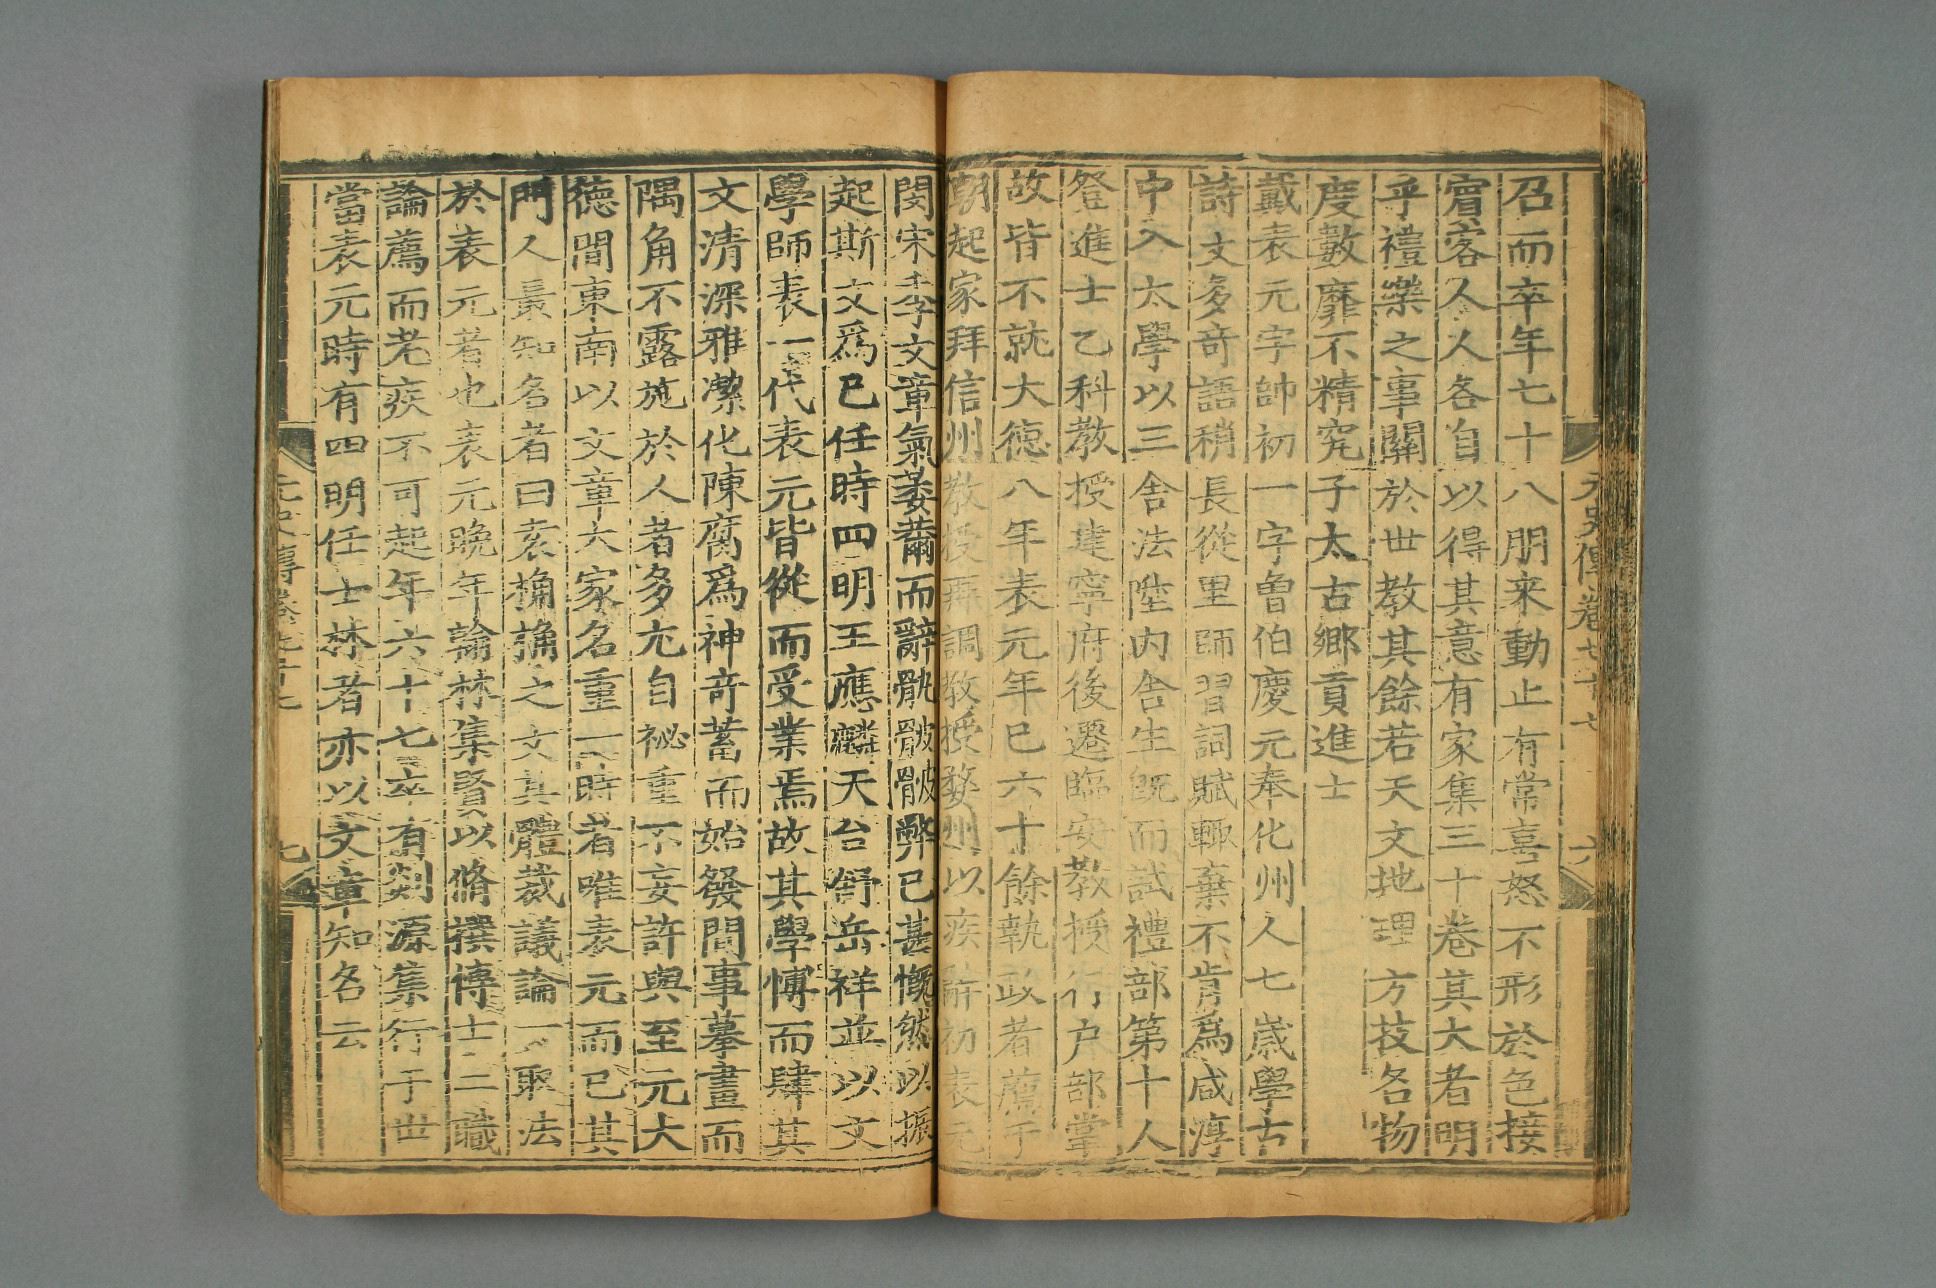 元史傳卷七十七
六
召而卒年七十八朋来動止有常喜怒不形於色接
賔客人人各自以得其意有家集三十巻其大者明
乎禮樂之事關於世教其餘若天文地理方技名物
度數靡不精究子太古鄉貢進士
戴表元字帥初一字曾伯慶元奉化州人七歲學古
詩文多奇語稍長從里師習詞賦輙棄不肯為咸淳
中入太學以三舍法陞内舍生旣而試禮部第十人
登進士乙科教授建寧府後遷臨安教授行户部掌
故皆不就大徳八年表元年已六十餘執政者薦于
朝起家拜信州教授再調教授婺州以疾辭初表元
閔宋季文章氣萎薾而辭骫骳骳弊已甚慨然以振
起斯文爲已任時四明王應麟天台舒岳祥並以文
學師表一代表元皆從而受業焉故其學愽而肆其
文清深雅潔化陳腐爲神竒蓄而始發間事摹畫而
隅角不露施於人者多尢自祕重不妄許與至元大
徳間東南以文章大家名重一時者唯表元而已其
門人最知名者曰袁桷桷之文其體裁議論一取法
於表元者也表元晚年翰林集賢以脩撰愽士二職
論薦而老疾不可起年六十七卒有剡源集行于世
當表元時有四明任士林者亦以文章知名云
元史傳卷七十七
七